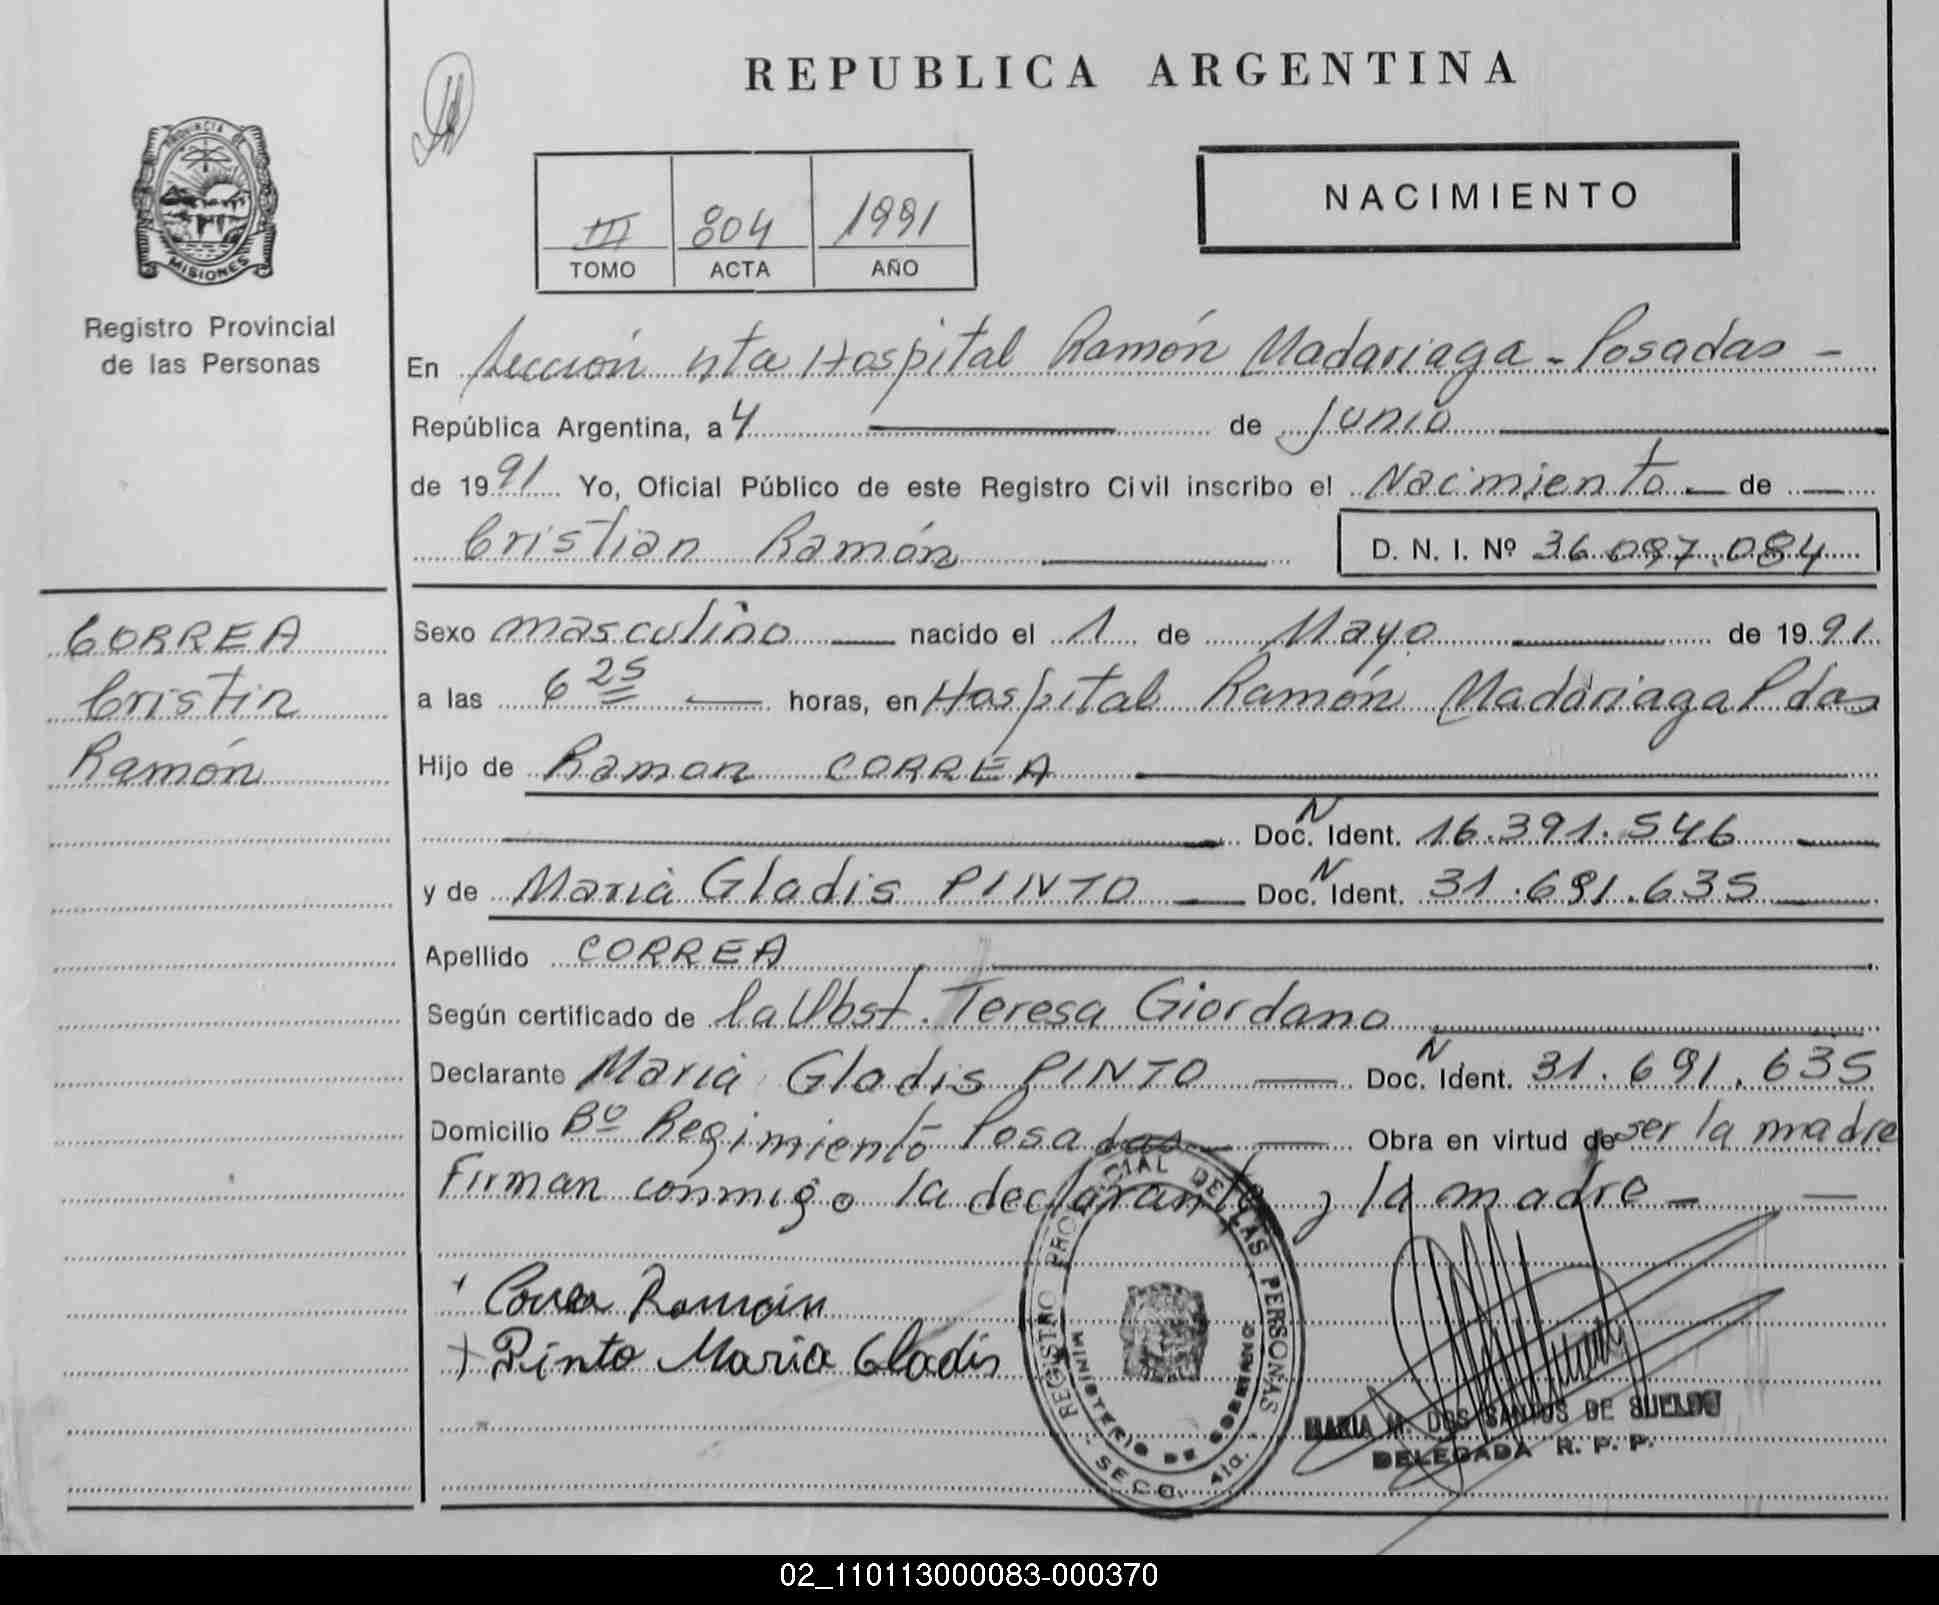 REPUBLICA ARGENTINA
PROVINCIA DE
MISIONES
Registro Provincial
de las Personas
III 804 1991
TOMO ACTA AÑO
NACIMIENTO
En Sección 4ta Hospital Ramón Madariaga - Posadas -
República Argentina, a 4 de Junio
de 1991 Yo, Oficial Público de este Registro Civil inscribo el Nacimiento de
Cristian Ramón
D. N. I. Nº 36.097.084
CORREA
Cristin
Ramón
Sexo masculino nacido el 1 de Mayo de 1991
a las 6 25 horas, en Hospital Ramón Madariaga Pdas
Hijo de Ramon CORREA
Doc. N Ident. 16.391.546
y de Maria Gladis PINTO Doc. N Ident. 31.691.635
Apellido CORREA
Según certificado de la Obst. Teresa Giordano
Declarante Maria Gladis PINTO Doc. N Ident. 31.691.635
Domicilio Bº Regimiento Posadas Obra en virtud de ser la madre
Firman conmigo la declarante y la madre -
Correa Ramón
Pinto Maria Gladis
REGISTRO PROVINCIAL DE LAS PERSONAS
MINISTERIO DE GOBIERNO
SECC. 4ta.
MARIA M. DOS SANTOS DE SUELDO
DELEGADA R. P. P.
02_110113000083-000370